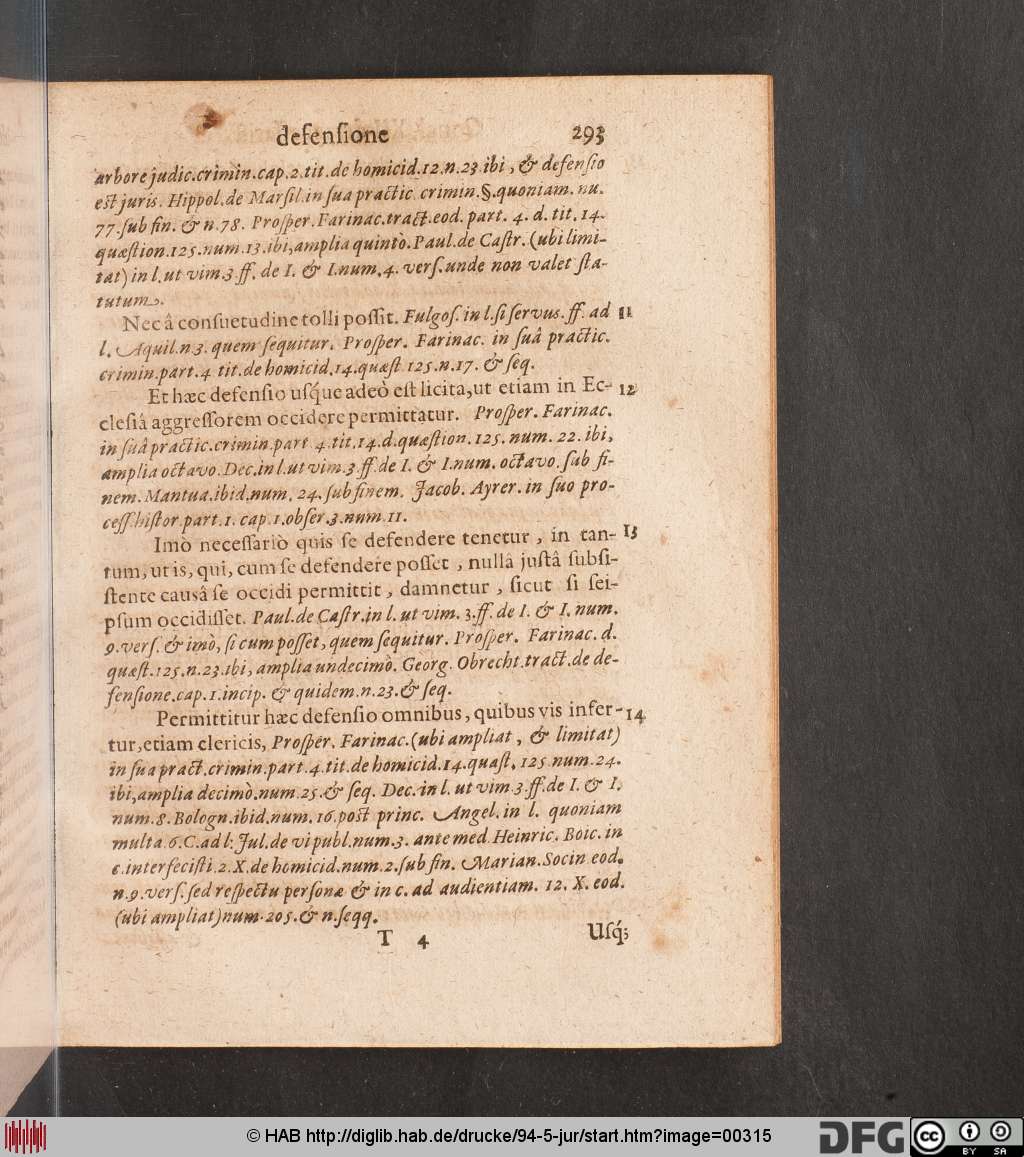 defenſione 293
arbore judic.crimin.cap.2.tit.de homicid.12.n.23 ibi, & defenſio
eſt juris. Hippol.de Marſil.in ſua practic. crimin.§.quoniam. nu.
77.ſub fin. & n.78. Proſper.Farinac.tract.eod. part. 4. d. tit. 14.
quæſtion.125.num.13.ibi,amplia quintò.Paul.de Caſtr.(ubi limi-
tat) in l.ut vim.3.ff. de I. & I.num.4. verſ.unde non valet ſta-
tutum.
Nec â conſuetudine tolli poſſit. Fulgoſ. in l.ſi ſervus.ff. ad 11
l. Aquil.n.3. quem ſequitur. Proſper. Farinac. in ſuâ practic.
crimin.part.4 tit.de homicid.14.quæſt 125.n.17. & ſeq.
Et hæc defenſio uſq́ue adeò eſt licita,ut etiam in Ec- 12
cleſiâ aggreſſorem occidere permittatur. Proſper. Farinac.
in ſuâ practic.crimin.part 4.tit.14.d.quæſtion.125. num. 22. ibi,
amplia octavo. Dec.in l.ut vim.3.ff.de I. & I.num. octavo. ſub fi-
nem. Mantua.ibid.num. 24. ſub finem. Jacob. Ayrer. in ſuo pro-
ceſſ.hiſtor.part.1. cap.1.obſer.3.num 11.
Imò neceſſariò quis ſe defendere tenetur, in tan- 13
tum, ut is, qui, cum ſe defendere poſſet, nullâ juſtâ ſubſi-
ſtente causâ ſe occidi permittit, damnetur, ſicut ſi ſei-
pſum occidiſſet. Paul.de Caſtr.in l. ut vim. 3.ff. de I. & I. num.
9.verſ. & imò, ſi cum poſſet, quem ſequitur. Proſper. Farinac. d.
quæſt.125.n.23.ibi, amplia undecimò. Georg. Obrecht.tract.de de-
fenſione.cap.1.incip. & quidem.n.23.& ſeq.
Permittitur hæc defenſio omnibus, quibus vis infer- 14
tur,etiam clericis, Proſper. Farinac.(ubi ampliat, & limitat)
in ſua pract.crimin.part.4.tit.de homicid.14.quæſt. 125.num.24.
ibi,amplia decimò.num.25.& ſeq. Dec.in l. ut vim 3.ff.de I. & I.
num.8.Bologn.ibid.num. 16.poſt princ. Angel.in l. quoniam
multa.6.C.ad l: Jul.de vi publ.num.3. ante med. Heinric. Boic. in
c.interfeciſti.2.X.de homicid.num.2.ſub fin. Marian.Socin eod.
n.9.verſ.ſed reſpectu perſonæ & in c. ad audientiam. 12. X. eod.
(ubi ampliat)num.205.& n.ſeqq.
T 4 Uſq́;
© HAB http://diglib.hab.de/drucke/94-5-jur/start.htm?image=00315
DFG cc BY SA